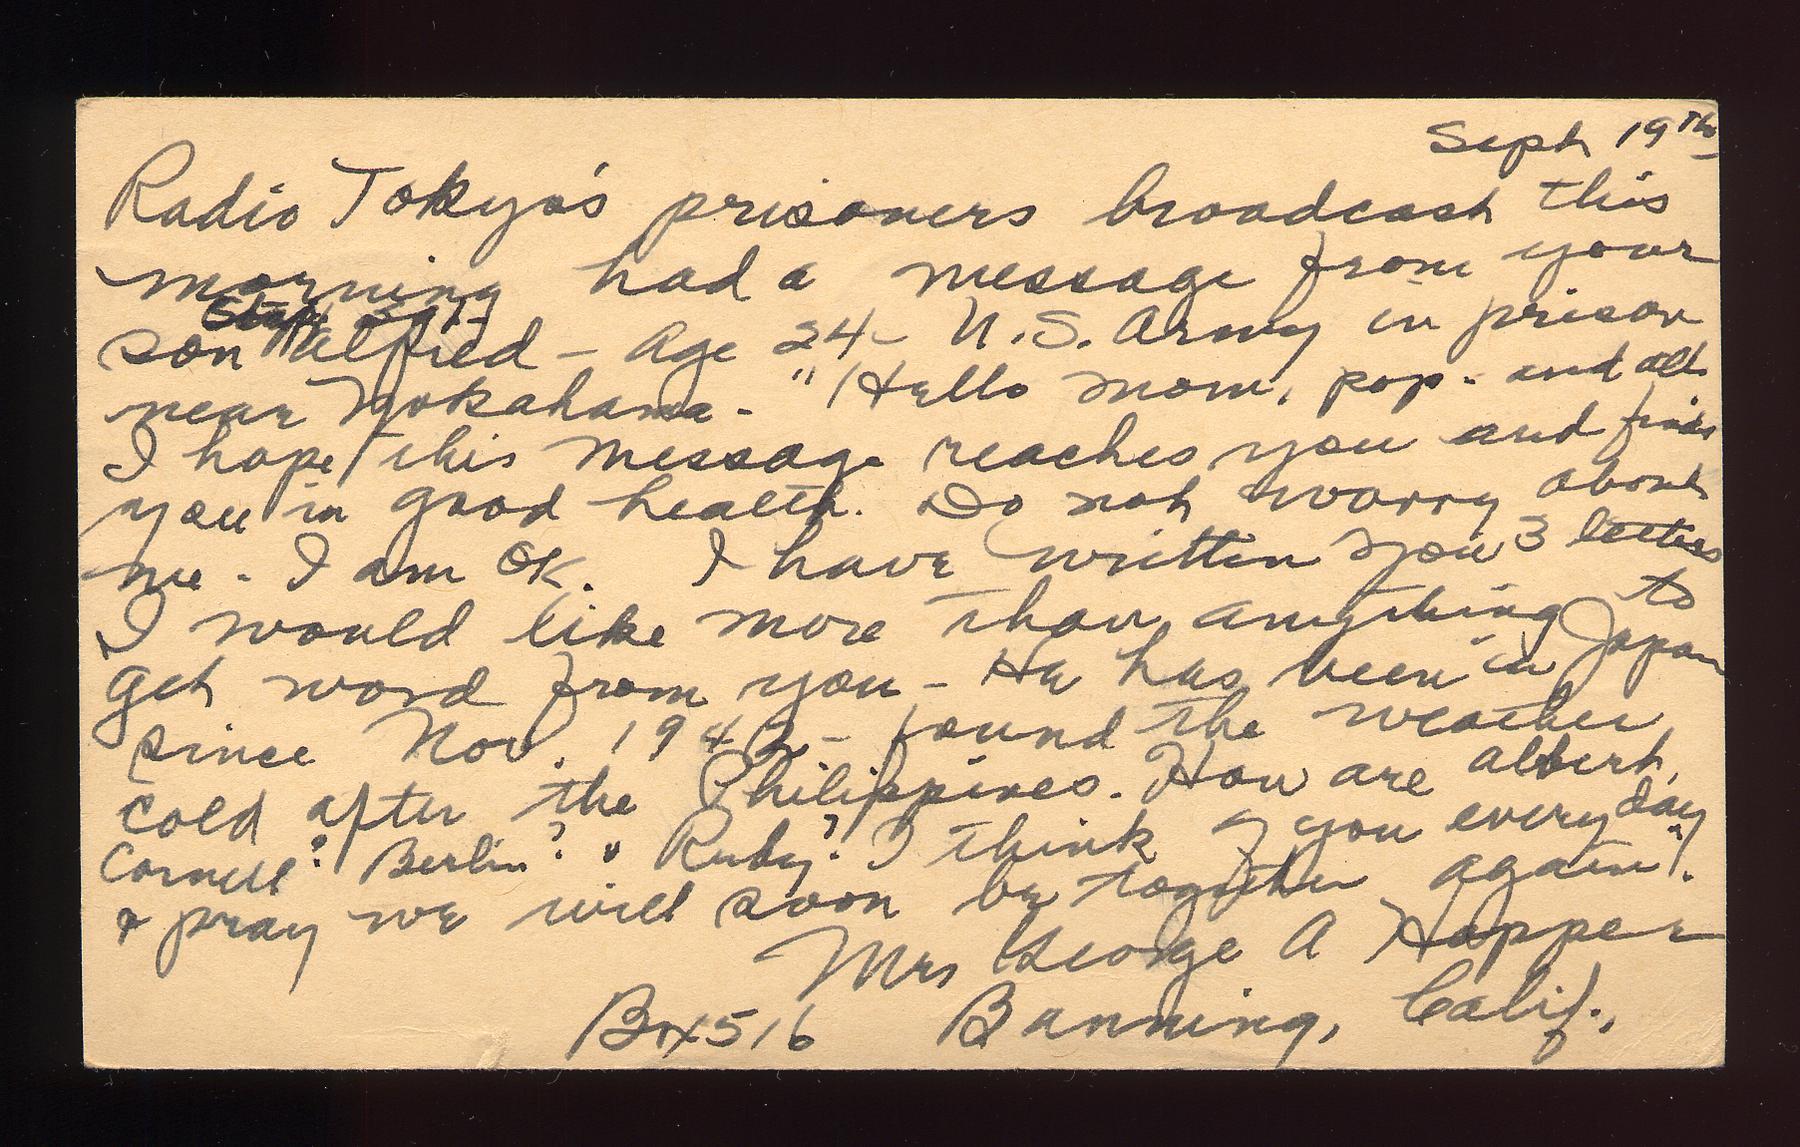 Sept 19th
Radio Tokyo's prisoners broadcast this
morning had a message from your
Staff Sgt.
son Alfred - Age 24 - U.S. Army in prison
near Yokahama - "Hello Mom, pop - and all
I hope this message reaches you and finds
you in good health. Do not worry about
me - I am OK. I have written you 3 letters
I would like more than anything to
get word from you - He has been in Japan
since Nov. 1942 - found the weather
cold after the Philippines. How are Albert,
Cornell? Berlin? & Ruby? I think of you every day
& pray we will soon be together again".
Mrs George A Hopper
Box 516 Banning, Calif.,